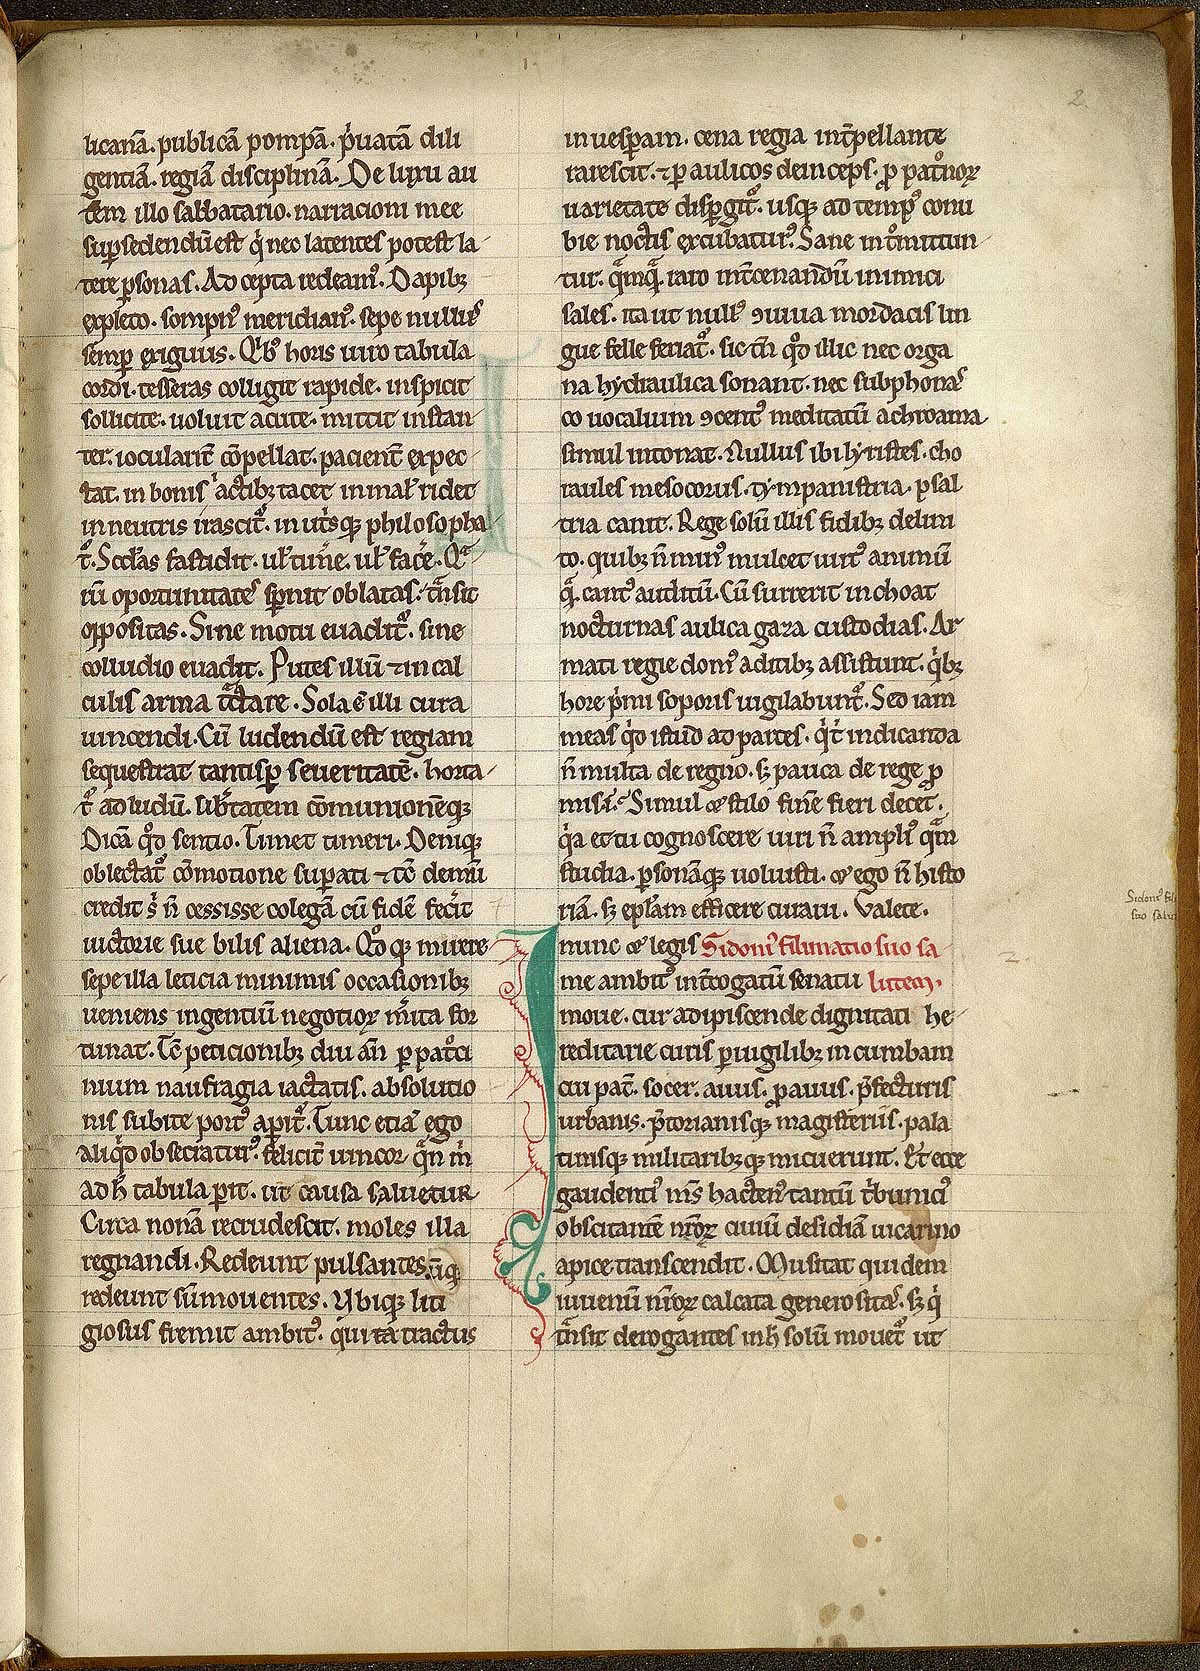 licanā. publicā pompā. p̍uatā dili
gentiā. regiā disciplinā. De luxu au
tem illo sabbatario. narracioni mee
suꝑsedendū est q̍ nec latentes potest la-
tere ꝑsonas. Ad cepta redeam᷒. Dapibꝫ
expleto. sompn᷒ meridian᷒. sepe null᷒
semꝑ exiguus. Qͥbꝰ horis uiro tabula
cordi. tesseras colligit rapide. inspicit
sollicite. uoluit acute. mittit instan-
ter. iocularit̄ cōpellat. pacient̄ expec-
tat. in bonis iactibꝫ tacet in mal̄ ridet
in neutris irascit᷑. in ut̍sqꝫ philosopha
t᷑. Scd̄as fastidit. ul̄ tim̄e. ul̄ fac̄e. Qͣ-
rū oportunitates sp̄nit oblatas. tͣnsit
oppositas. Sine motu euadit᷑. sine
colludio euadit. Putes illū ⁊ in cal
culis arma tͣctare. Sola ē illi cura
uincendi. Cū ludendū est regiam
sequestrat tantisꝑ seueritatē. horta-
t᷑ ad ludū. lib̍tatem cōmunionēqꝫ
Dicā qđ sentio. Timet timeri. Deniqꝫ
oblectat᷑ cōmotione suꝑati ⁊ tc̄ demū
credit s̍ n̄ cessisse colegā cū fidē fec̍it
uictorie sue bilis aliena. Qđ qꝫ mirere
sepe illa leticia minimis occasionibꝫ
ueniens ingentiū negotioꝝ m̍ita for
tunat. Tc̄ peticionibꝫ diu an̄ ꝑ pat͛ci
nium naufragia iactatis. absolutio
nis subite port᷒ aꝑit᷑. Tunc etiā ego
aliq̍d obsecratur᷒. felicit̄ uincor qͣn m̍
ad h̄ tabula ꝑit. ut causa saluetur
Circa nonā recrudescit. moles illa
regnandi. Redeunt pulsantes.
redeunt sūmouentes. Vbiqꝫ liti
giosus fremit ambit᷒. qui tractus
in uesꝑam. cena regia int̄pellante
rarescit. ⁊ ꝑ aulicos deinceps. ꝓ pat͛noꝝ
uarietate disꝑgit᷑. usqꝫ ad temp᷒ conu
bie noctis excubatur᷒. Sane int͛mittun-
tur. qͣmqͣ raro int̄ cenandū mimici
sales. ita ut null᷒ ꝯuiua mordacis lin
gue felle feriat᷑. sic tn̄ qđ illic nec orga
na hydraulica sonant. nec sub phonas
co uocalium ꝯcent᷒ meditatū achroama
simul intonat. Nullus ibi lyristes. cho
raules mesocorus. tympanistria. psal
tria canit. Rege solū illis fidibꝫ delini
to. quibꝫ n̄ min᷒ mulcet uirt᷒ animū
qͣ cant᷒ auditū. Cū surrexit inchoat
nocturnas aulica gaza custodias. Ar
mati regie dom᷒ aditibꝫ assistunt. q̍bꝫ
hore p̍mi soporis uigilabunt᷑. Sed iam
meas q̍d istud ad partes. q̍ t̍ indicanda
n̄ multa de regno. sꝫ pauca de rege ꝓ
misi. Simul ⁊ stilo finē fieri decet.
q̍a et tu cognoscere uiri n̄ ampli᷒ qͣm
studia. ꝑsonāqꝫ uoluisti. ⁊ ego n̄ histo
riā. sꝫ epl̄am efficere curaui. Valete.
I nunc ⁊ legis Sidoni᷒ filimatio suo sa
me ambit᷒ int̄rogatū senatu lutem.
moue. cur adipiscende dignitati he-
reditarie curis ꝑuigilibꝫ incumbam
cui pat̄. socer. auus. ꝓauus. p̄fecturis
urbanis. p̄torianisqꝫ magisteriis. pala
tinisqꝫ militaribꝫqꝫ micuerunt. Et ecce
gaudenti᷒ m̄s hacten᷒ tantū t̍bunici᷒
obscitantē nr̄oꝝ ciuiū desidiā uicarino
apice transcendit. Musitat quidem
iuuenū nr̄oꝝ calcata generositas. sꝫ q̍
tͣnsit derogantes in h̄ solū mouet᷑ ut
2.